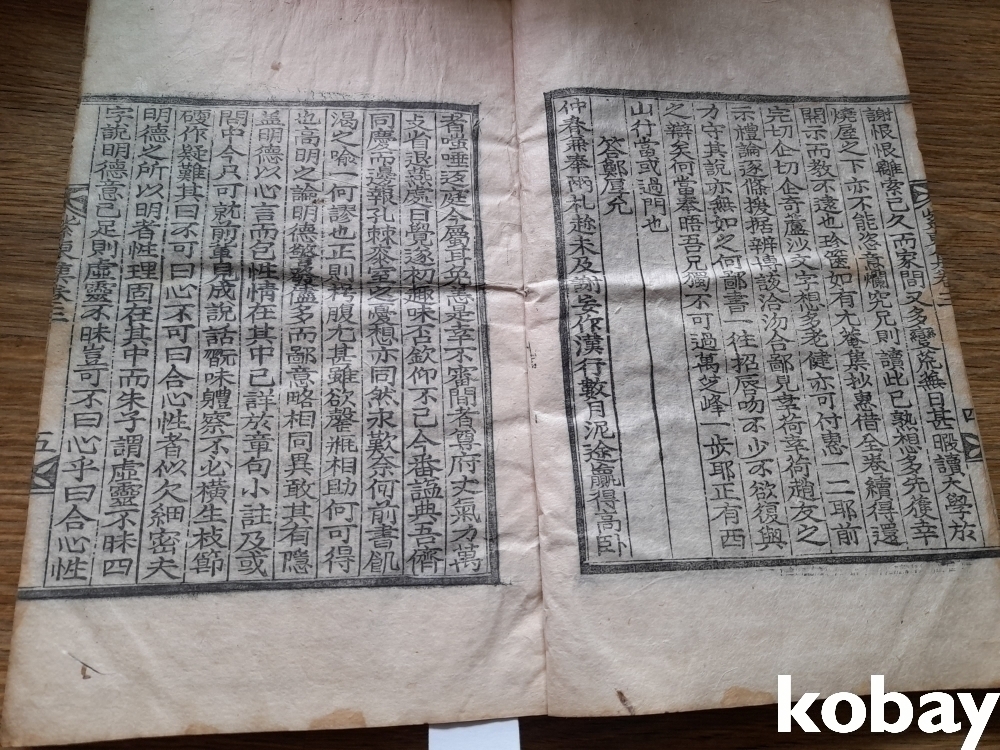 謝恨恨離索已久而家間又多變荒無日甚暇讀大學於
燒屋之下亦不能恣意爛究兄則讀此已熟想多先獲幸
開示而教不遠也珍篋如有尤菴集抄惠借全卷續得還
完切企切企奇蘆沙文字想多老健亦可付惠一二耶前
示禮論逐條援据辨博該洽沕合鄙見幸荷幸荷趙友之
力守其說亦無如之何鄙書一往招辱吻不少不欲復與
之辨矣何當奉晤吾兄獨不可過萬芝峰一步耶正有西
山行當或過門也
答鄭厚允
仲春兼奉兩札趁未及謝妄作漢行數月泥途贏得高臥
者嗤唾汝庭今屬耳免恙是幸不審間者尊府丈氣力萬
支省退燕處日覺遂初趣味否欽仰不已今番謚典吾儕
同慶而邊報孔棘泰室之憂想亦同然永歎奈何前書飢
渴之喩一何謬也正則枵腹尤甚雖欲罄甁相助何可得
也高明之論明德醫藥儘多而鄙意略相同異敢其有隱
盖明德以心言而包性情在其中已詳於章句小註及或
問中今只可就前軰見成說話翫味軆察不必橫生枝節
硬作疑難其曰不可曰心不可曰合心性者似欠細密夫
明德之所以明者性理固在其中而朱子謂虛靈不昧四
字說明德意已足則虛靈不昧豈可不曰心乎曰合心性
四
卷三
五
kobay